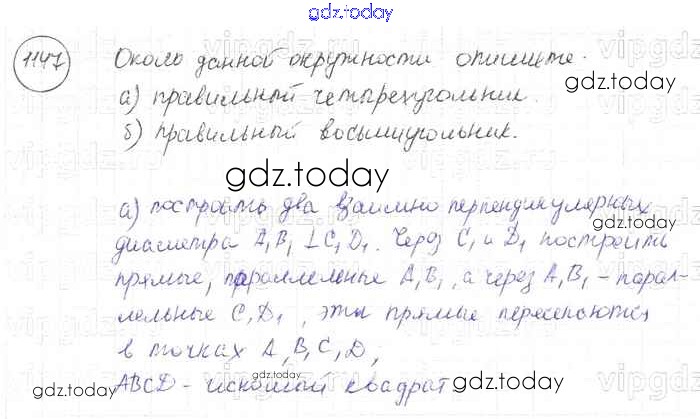 gdz.today
1147 Около данной окружности опишите.
gdz.today
а) правильный четырехугольник.
б) правильный восьмиугольник.
gdz.today
а) построить два взаимно перпендикулярных
gdz.today
диаметра A₁B₁ ⊥ C₁D₁. Через C₁ и D₁ построить
прямые, параллельные A₁B₁, а через A₁B₁ – парал-
лельные C₁D₁, эти прямые пересекаются
gdz.today
в точках A, B, C, D;
ABCD – искомый квадрат
gdz.today
gdz.today